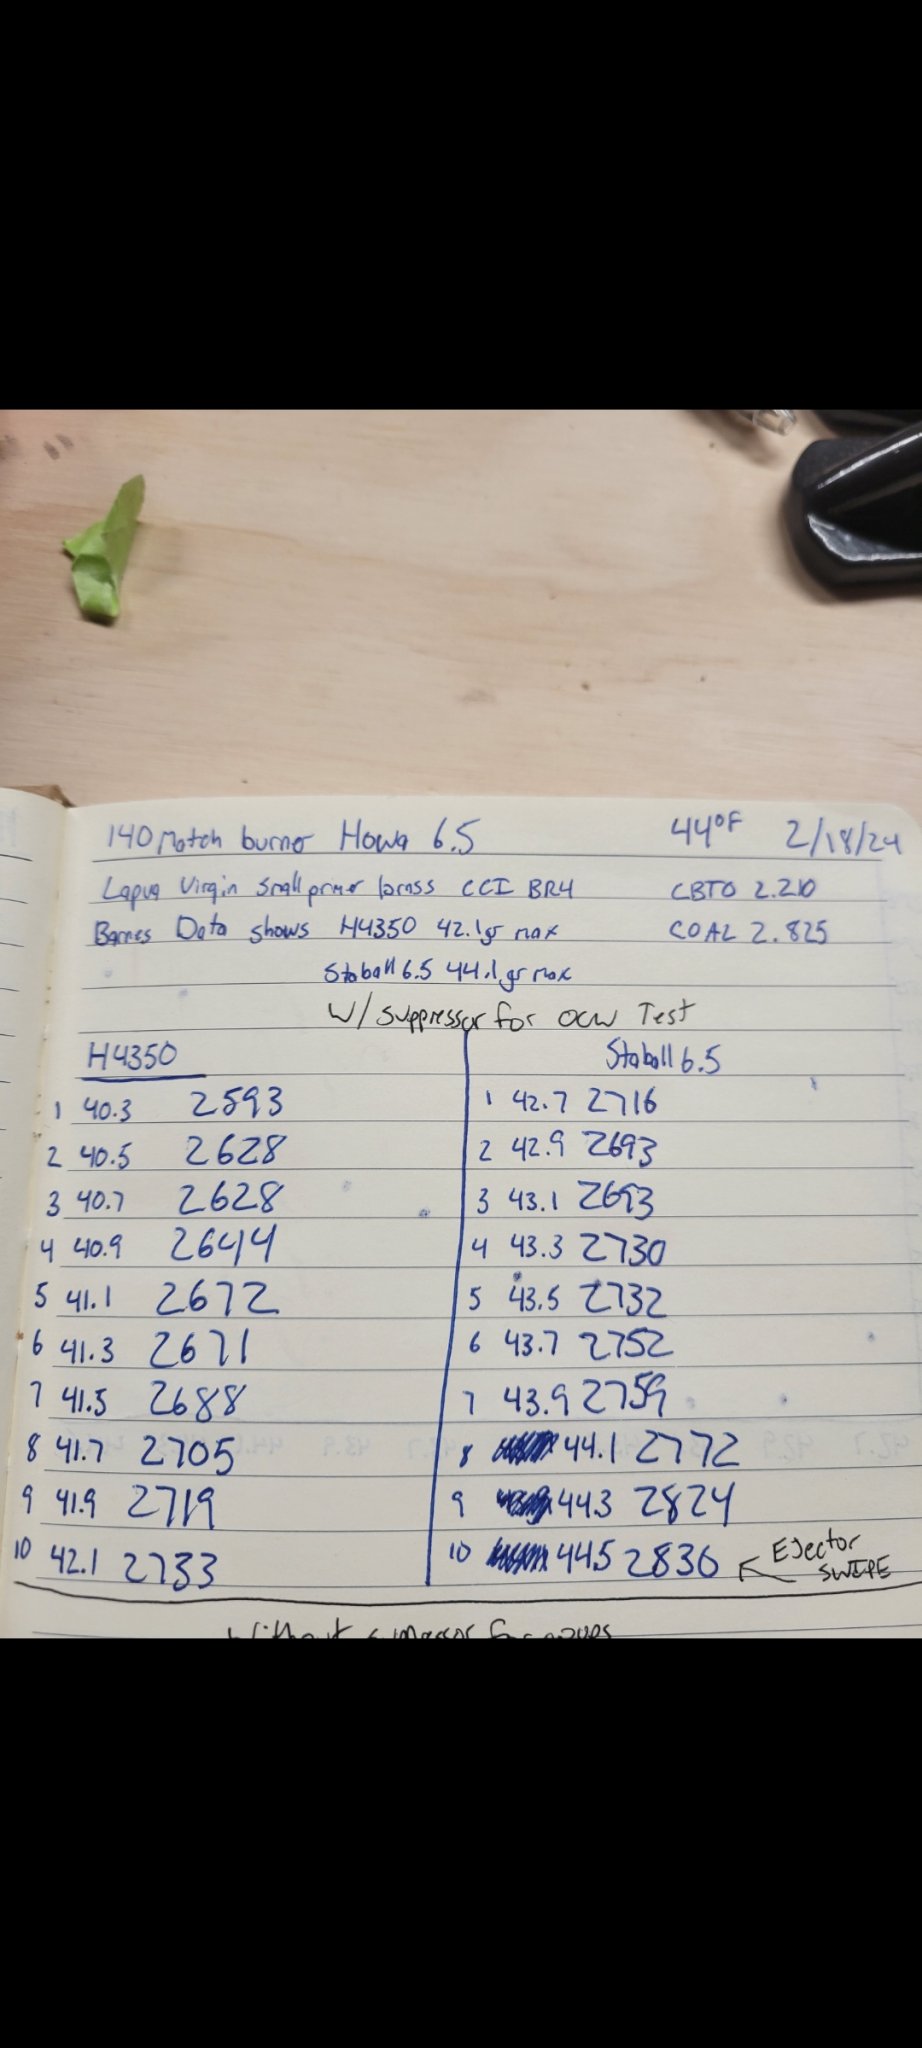 140 Match burner Howa 6.5 44°F 2/18/24
Lapua Virgin small primer brass CCI BR4 CBTO 2.210
Barnes Data shows H4350 42.1gr max COAL 2.825
Staball 6.5 44.1gr max
W/ suppressor for OCW Test
H4350 Staball 6.5
1 40.3 2593 1 42.7 2716
2 40.5 2628 2 42.9 2693
3 40.7 2628 3 43.1 2693
4 40.9 2644 4 43.3 2730
5 41.1 2672 5 43.5 2732
6 41.3 2671 6 43.7 2752
7 41.5 2688 7 43.9 2759
8 41.7 2705 8 44.1 2772
9 41.9 2719 9 44.3 2824
10 42.1 2733 10 44.5 2836 Ejector
SWIPE
Without suppressor for groups